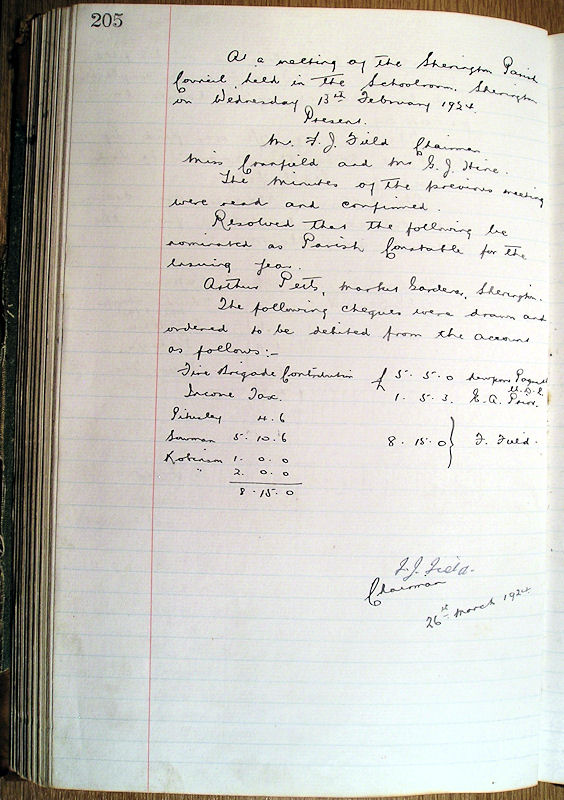 205
At a meeting of the Sherington Parish
Council held in the Schoolroom, Sherington
on Wednesday 13th February 1924.
Present.
Mr. F. J. Field Chairman
Miss Cranfield and Mr G. J. Hine.
The minutes of the previous meeting
were read and confirmed.
Resolved that the following be
nominated as Parish Constable for the
ensuing year.
Arthur Petts, Market Gardener, Sherington.
The following cheques were drawn and
ordered to be debited from the account
as follows:-
Fire Brigade Contribution £ 5. 5. 0 Newport Pagnell U.D.C.
Income Tax. 1. 5. 3. E. A. Prior.
4. 6
Sowman 5. 10. 6 8. 15. 0 } F. Field.
Robinson 1. 0. 0
" 2. 0. 0
8. 15. 0
F. J. Field.
Chairman
26th March 1924